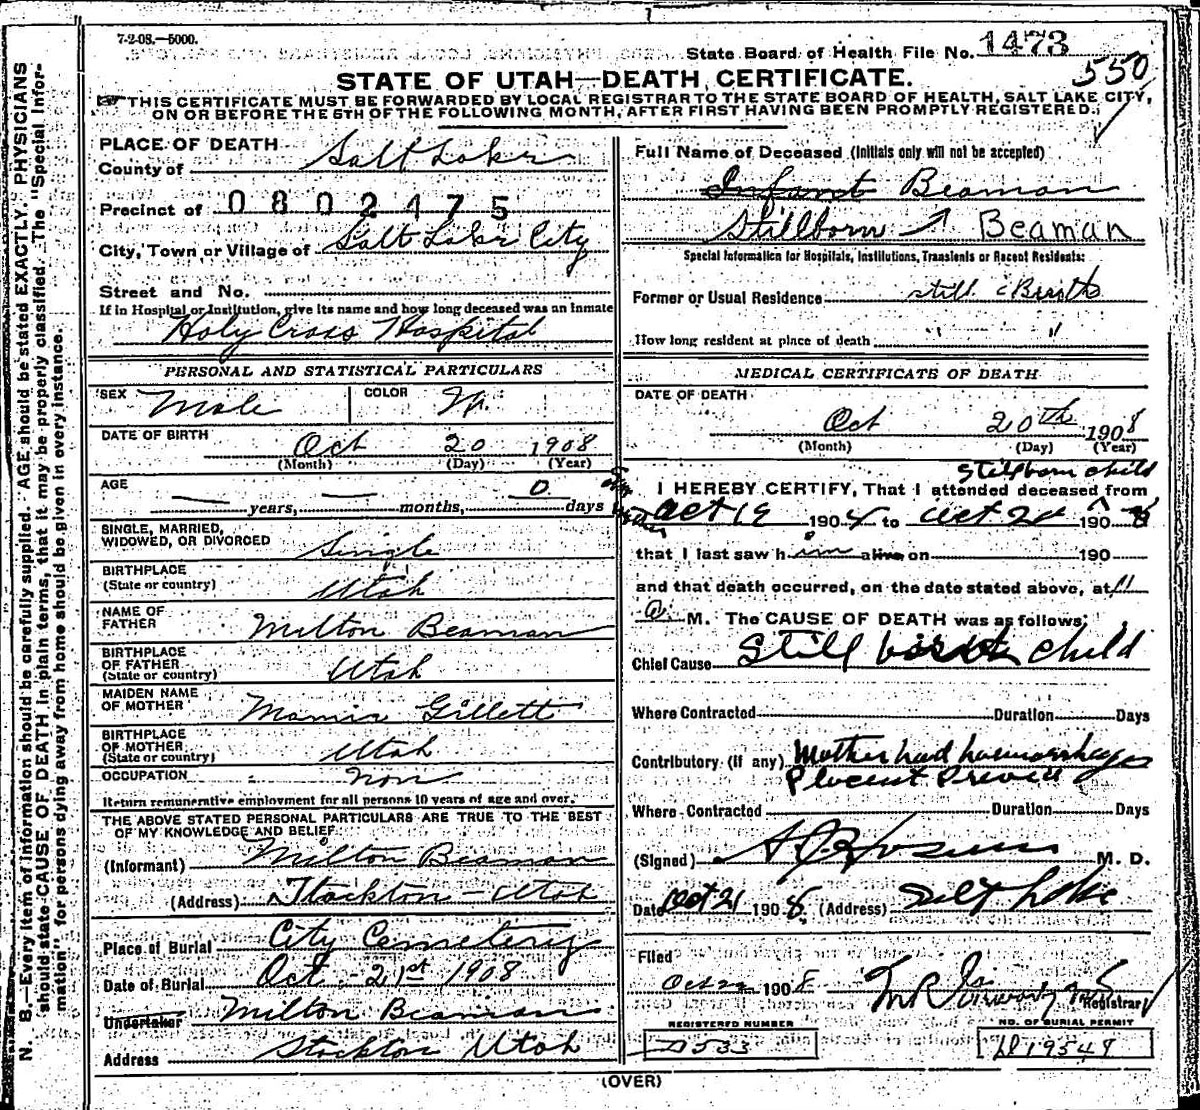 7-2-08.—5000.
State Board of Health File No. 1473
550
STATE OF UTAH—DEATH CERTIFICATE.
THIS CERTIFICATE MUST BE FORWARDED BY LOCAL REGISTRAR TO THE STATE BOARD OF HEALTH, SALT LAKE CITY,
ON OR BEFORE THE 5TH OF THE FOLLOWING MONTH, AFTER FIRST HAVING BEEN PROMPTLY REGISTERED.
N. B.—Every item of information should be carefully supplied. AGE should be stated EXACTLY. PHYSICIANS
should state CAUSE OF DEATH in plain terms, that it may be properly classified. The "Special Infor-
mation" for persons dying away from home should be given in every instance.
PLACE OF DEATH
County of Salt Lake
Precinct of 0802475
City, Town or Village of Salt Lake City
Street and No.
If in Hospital or Institution, give its name and how long deceased was an inmate
Holy Cross Hospital
PERSONAL AND STATISTICAL PARTICULARS
SEX Male COLOR W.
DATE OF BIRTH Oct 20 1908
(Month) (Day) (Year)
AGE — years, — months, 0 days
SINGLE, MARRIED,
WIDOWED, OR DIVORCED Single
BIRTHPLACE
(State or country) Utah
NAME OF
FATHER Milton Beaman
BIRTHPLACE
OF FATHER
(State or country) Utah
MAIDEN NAME
OF MOTHER Mamie Gillett
BIRTHPLACE
OF MOTHER
(State or country) Utah
OCCUPATION Non
Return remunerative employment for all persons 10 years of age and over.
THE ABOVE STATED PERSONAL PARTICULARS ARE TRUE TO THE BEST
OF MY KNOWLEDGE AND BELIEF
(Informant) Milton Beaman
(Address) Stockton - Utah
Place of Burial City Cemetery
Date of Burial Oct - 21st 1908
Undertaker Milton Beaman
Address Stockton Utah
Full Name of Deceased (Initials only will not be accepted)
Infant Beaman
Stillborn Beaman
Special Information for Hospitals, Institutions, Transients or Recent Residents:
Former or Usual Residence still Birth
How long resident at place of death " "
MEDICAL CERTIFICATE OF DEATH
DATE OF DEATH
Oct 20th 1908
(Month) (Day) (Year)
Stillborn child
I HEREBY CERTIFY, That I attended deceased from
Oct 19 190 to Oct 20 1908
that I last saw him alive on 190
and that death occurred, on the date stated above, at 11
a. M. The CAUSE OF DEATH was as follows:
Chief Cause Still birth child
Where Contracted Duration Days
Contributory (if any) Mother had haemorrhages
Placent Previa
Where Contracted Duration Days
(Signed) M. D.
Date Oct 21 1908. (Address) Salt Lake
Filed
Oct 22 1908 Registrar
REGISTERED NUMBER
D 533
NO. OF BURIAL PERMIT
19549
(OVER)